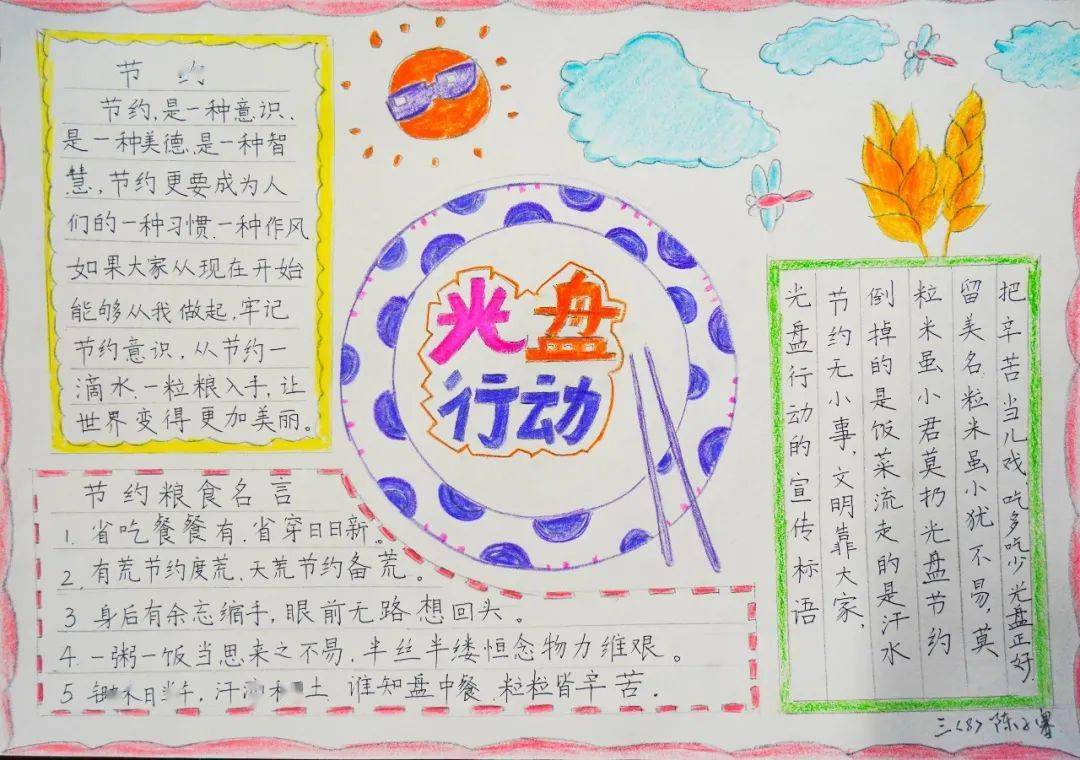 节
节约,是一种意识.
是一种美德,是一种智
慧,节约更要成为人
们的一种习惯.一种作风
如果大家从现在开始
能够从我做起,牢记
节约意识,从节约一
滴水.一粒粮入手,让
世界变得更加美丽。
光盘
行动
光盘行动的宣传标语
节约无小事,文明靠大家,
倒掉的是饭菜流走的是汗水
粒米虽小君莫扔光盘节约
留美名.粒米虽小犹不易,莫
把辛苦当儿戏.吃多吃少光盘正好
节约粮食名言
1. 省吃餐餐有.省穿日日新。
2. 有荒节约度荒,天荒节约备荒。
3 身后有余忘缩手,眼前无路.想回头。
4.一粥一饭当思来之不易.半丝半缕恒念物力维艰。
5 禾日当午,汗 土 谁知盘中餐.粒粒皆辛苦.
三(8) 陈